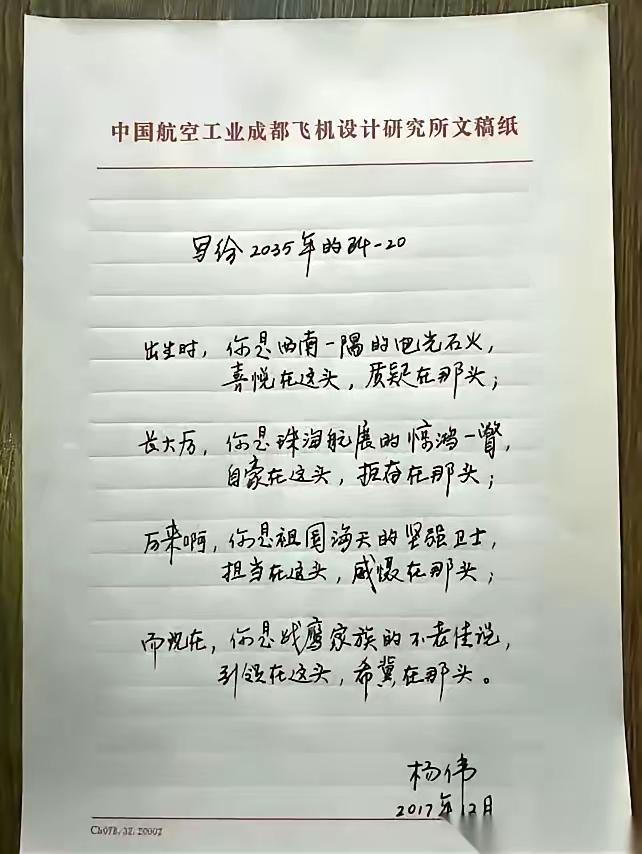 中国航空工业成都飞机设计研究所文稿纸
写给2035年的歼-20
出生时，你是西南一隅的电光石火，
喜悦在这头，质疑在那头；
长大后，你是珠海航展的惊鸿一瞥，
自豪在这头，拒吞在那头；
后来啊，你是祖国海天的坚强卫士，
担当在这头，威慑在那头；
而现在，你是战鹰家族的不老传说，
引领在这头，希冀在那头。
杨伟
2017年12月